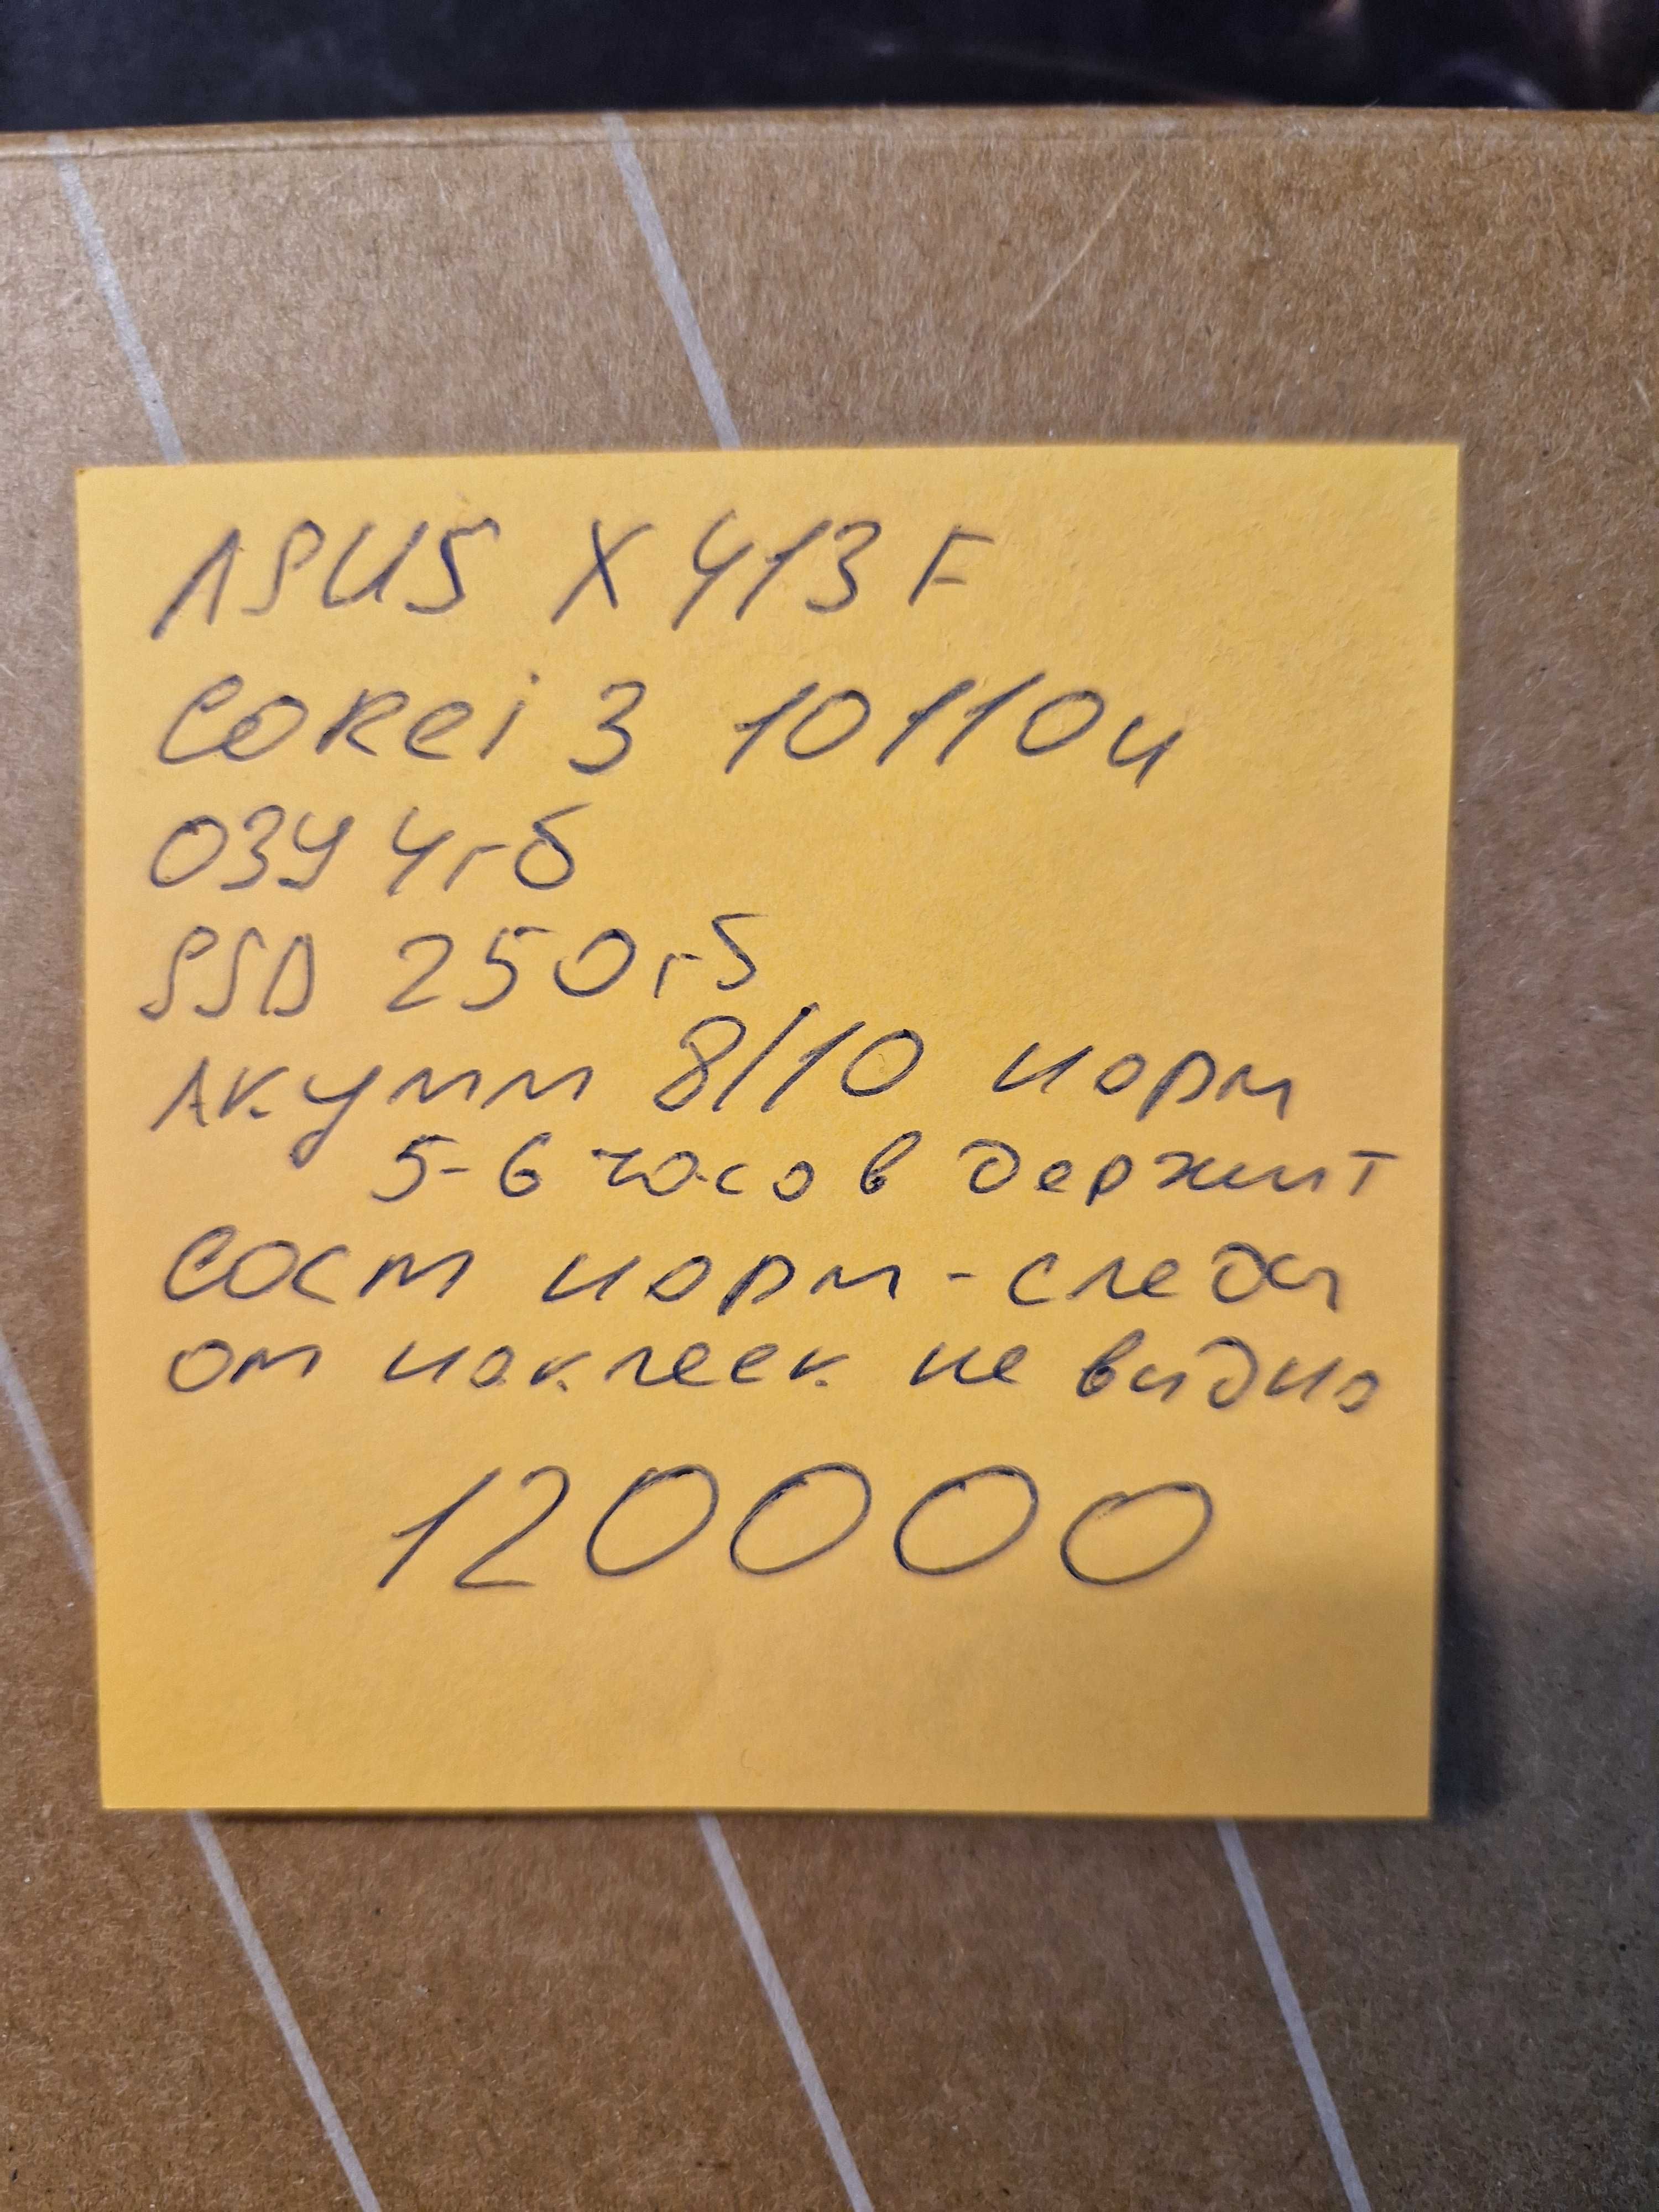 ASUS X413F
COREi3 10110u
ОЗУ 4гб
SSD 250гб
Акумм 8/10 норм
5-6 часов держит
Сост норм - следы
от наклеек не видно
120000